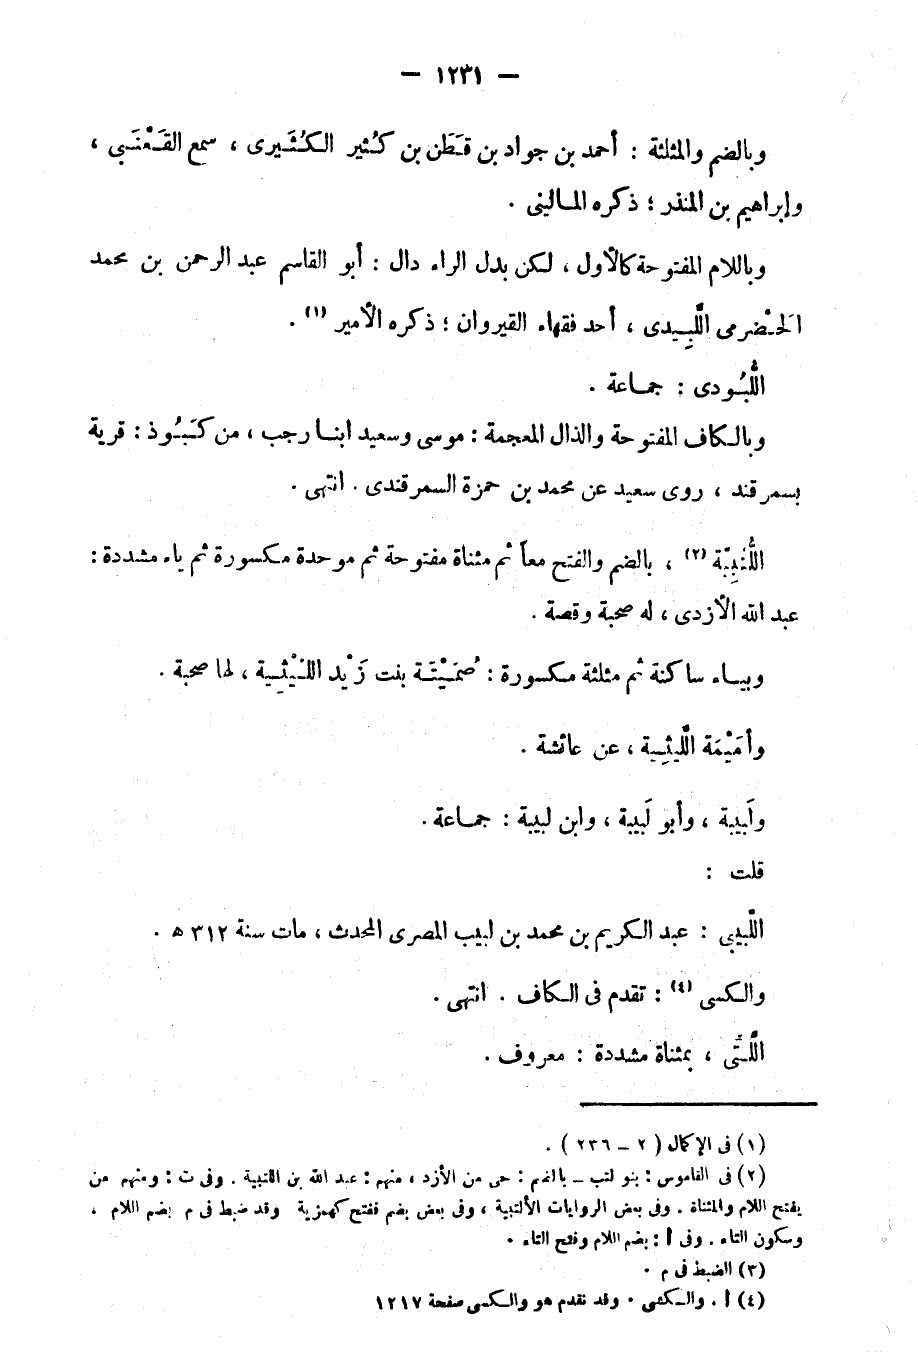 — ١٢٣١ —
وبالضم والمثلثة : أحمد بن جواد بن قَطَن بن كُثير الكُثَيرى ، سمع القَعْنَبى ،
وإبراهيم بن المنذر ؛ ذكره المالينى .
وباللام المفتوحة كالأول ، لكن بدل الراء دال : أبو القاسم عبد الرحمن بن محمد
الحَضْرمى اللَّبِيدى ، أحد فقهاء القيروان ؛ ذكره الأمير (١) .
اللُّبُودى : جماعة .
وبالكاف المفتوحة والذال المعجمة : موسى وسعيد ابنا رجب ، من كَبُوذ : قرية
بسمرقند ، روى سعيد عن محمد بن حمزة السمرقندى . انتهى .
اللُّتَبِيّة (٢) ، بالضم والفتح معاً ثم مثناة مفتوحة ثم موحدة مكسورة ثم ياء مشددة :
عبد الله الأزدى ، له صحبة وقصة .
وبياء ساكنة ثم مثلثة مكسورة : صُمَيْتَة بنت زَيْد اللَّيْثِية ، لها صحبة .
وأُمَيْمَة اللَّيثِية ، عن عائشة .
ولَبيبة ، وأبو لَبيبة ، وابن لبيبة : جماعة .
قلت :
اللَّبيبى : عبد الكريم بن محمد بن لبيب المصرى المحدث ، مات سنة ٣١٢ ه .
والكسى (٤) : تقدم فى الكاف . انتهى .
اللَّتّى ، بمثناة مشددة : معروف .
(١) فى الإكمال ( ٢ – ٢٣٦ ) .
(٢) فى القاموس : بنو لتب – بالضم : حى من الأزد ، منهم : عبد الله بن اللتبية . وفى ت : ومنهم من
يفتح اللام والمثناة . وفى بعض الروايات الألتبية ، وفى بعض بضم ففتح كهمزية وقد ضبط فى م بضم اللام ،
وسكون التاء . وفى أ : بضم اللام وفتح التاء .
(٣) الضبط فى م .
(٤) أ . والكفى . وقد تقدم هو والكسى صفحة ١٢١٧